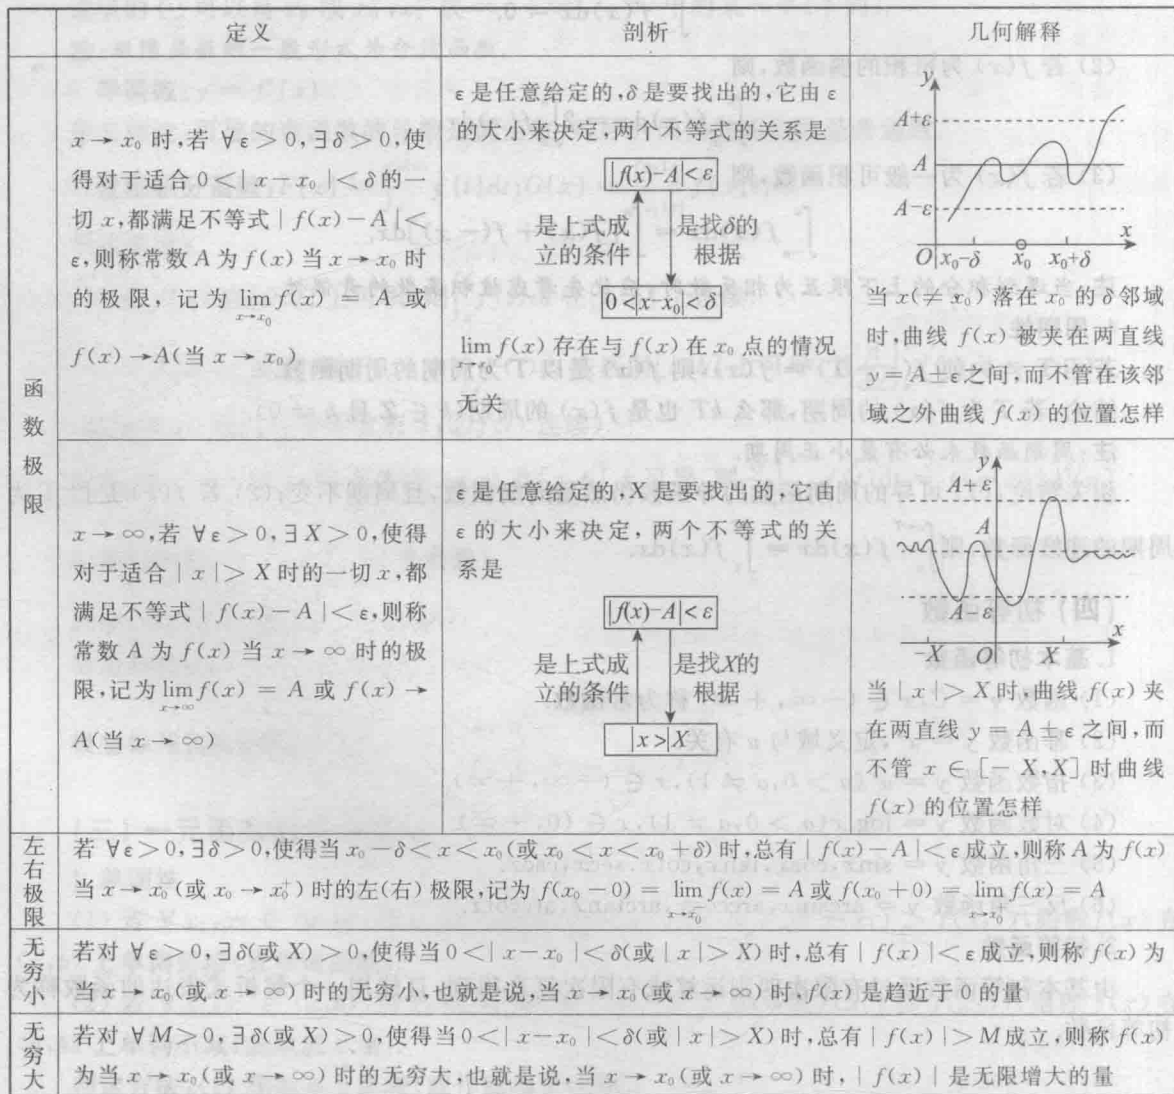 定义
剖析
几何解释
函
数
极
限
x → x₀ 时,若 ∀ε > 0, ∃δ > 0, 使
得对于适合 0 < | x − x₀ | < δ 的一
切 x, 都满足不等式 | f(x) − A | <
ε, 则称常数 A 为 f(x) 当 x → x₀ 时
的极限, 记为 lim f(x) = A 或
x→x₀
f(x) → A(当 x → x₀)
ε 是任意给定的, δ 是要找出的, 它由 ε
的大小来决定, 两个不等式的关系是
|f(x)−A|<ε
是上式成 是找δ的
立的条件 根据
0<|x−x₀|<δ
lim f(x) 存在与 f(x) 在 x₀ 点的情况
x→x₀
无关
y
A+ε
A
A−ε
x
O x₀−δ x₀ x₀+δ
当 x(≠ x₀) 落在 x₀ 的 δ 邻域
时, 曲线 f(x) 被夹在两直线
y = A ± ε 之间, 而不管在该邻
域之外曲线 f(x) 的位置怎样
x → ∞, 若 ∀ε > 0, ∃X > 0, 使得
对于适合 | x | > X 时的一切 x, 都
满足不等式 | f(x) − A | < ε, 则称
常数 A 为 f(x) 当 x → ∞ 时的极
限, 记为 lim f(x) = A 或 f(x) →
x→∞
A(当 x → ∞)
ε 是任意给定的, X 是要找出的, 它由
ε 的大小来决定, 两个不等式的关
系是
|f(x)−A|<ε
是上式成 是找X的
立的条件 根据
|x>|X
y
A+ε
A
A−ε
x
−X O X
当 | x | > X 时, 曲线 f(x) 夹
在两直线 y = A ± ε 之间, 而
不管 x ∈ [− X, X] 时曲线
f(x) 的位置怎样
左
右
极
限
若 ∀ε > 0, ∃δ > 0, 使得当 x₀ − δ < x < x₀(或 x₀ < x < x₀ + δ) 时, 总有 | f(x) − A | < ε 成立, 则称 A 为 f(x)
当 x → x₀⁻(或 x₀ → x₀⁺) 时的左(右) 极限, 记为 f(x₀ − 0) = lim f(x) = A 或 f(x₀ + 0) = lim f(x) = A
x→x₀⁻ x→x₀⁺
无
穷
小
若对 ∀ε > 0, ∃δ(或 X) > 0, 使得当 0 < | x − x₀ | < δ(或 | x | > X) 时, 总有 | f(x) | < ε 成立, 则称 f(x) 为
当 x → x₀(或 x → ∞) 时的无穷小, 也就是说, 当 x → x₀(或 x → ∞) 时, f(x) 是趋近于 0 的量
无
穷
大
若对 ∀M > 0, ∃δ(或 X) > 0, 使得当 0 < | x − x₀ | < δ(或 | x | > X) 时, 总有 | f(x) | > M 成立, 则称 f(x)
为当 x → x₀(或 x → ∞) 时的无穷大, 也就是说, 当 x → x₀(或 x → ∞) 时, | f(x) | 是无限增大的量